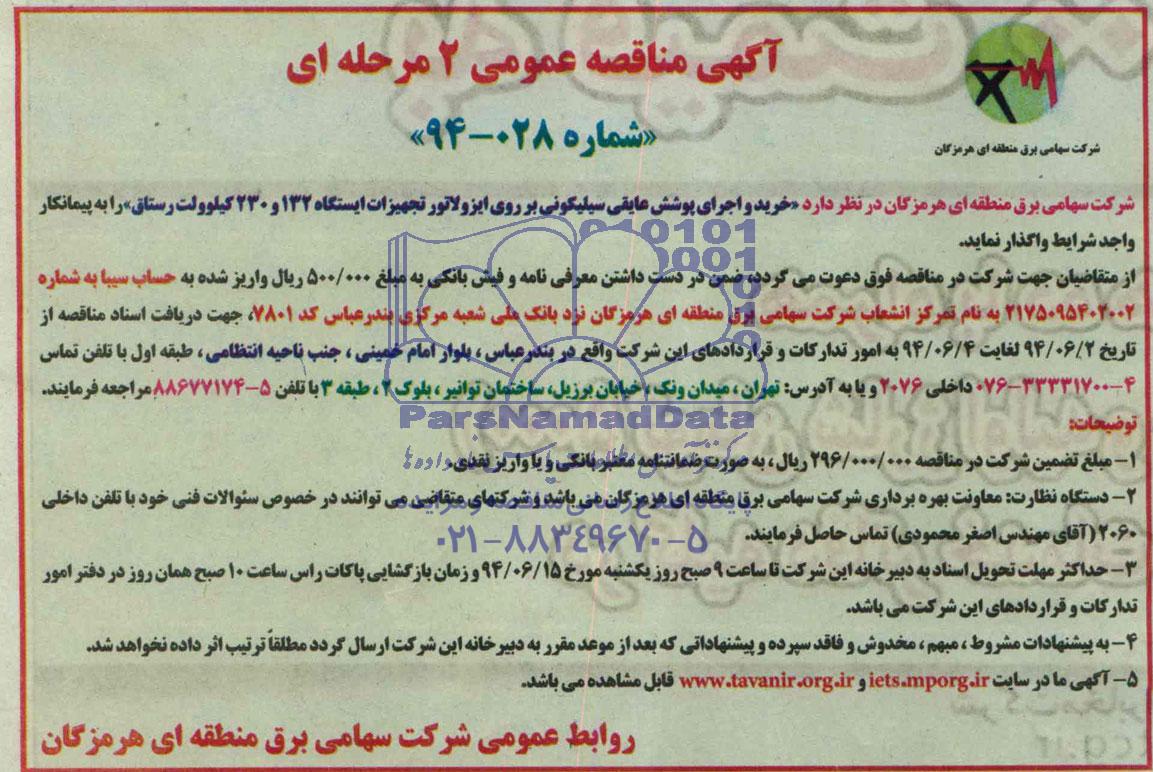 آگهی مناقصه عمومی ۲ مرحله ای
«شماره ۰۲۸-۹۴»
شرکت سهامی برق منطقه ای هرمزگان
شرکت سهامی برق منطقه ای هرمزگان در نظر دارد «خرید و اجرای پوشش عایقی سیلیکونی بر روی ایزولاتور تجهیزات ایستگاه ۱۳۲ و ۲۳۰ کیلوولت رستاق» را به پیمانکار
واجد شرایط واگذار نماید.
از متقاضیان جهت شرکت در مناقصه فوق دعوت می گردد، ضمن در دست داشتن معرفی نامه و فیش بانکی به مبلغ ۵۰۰/۰۰۰ ریال واریز شده به حساب سیبا به شماره
۲۱۷۵۰۹۵۴۰۲۰۰۲ به نام تمرکز انشعاب شرکت سهامی برق منطقه ای هرمزگان نزد بانک ملی شعبه مرکزی بندرعباس کد ۷۸۰۱، جهت دریافت اسناد مناقصه از
تاریخ ۹۴/۰۶/۲ لغایت ۹۴/۰۶/۴ به امور تدارکات و قراردادهای این شرکت واقع در بندرعباس ، بلوار امام خمینی ، جنب ناحیه انتظامی ، طبقه اول با تلفن تماس
۴-۰۷۶-۳۳۳۳۱۷۰۰ داخلی ۲۰۷۶ و یا به آدرس: تهران ، میدان ونک ، خیابان برزیل، ساختمان توانیر ، بلوک ۲ ، طبقه ۳ با تلفن ۵-۸۸۶۷۷۱۷۴ مراجعه فرمایند.
توضیحات:
۱- مبلغ تضمین شرکت در مناقصه ۲۹۶/۰۰۰/۰۰۰ ریال ، به صورت ضمانتنامه معتبر بانکی و یا واریز نقدی.
۲- دستگاه نظارت: معاونت بهره برداری شرکت سهامی برق منطقه ای هرمزگان می باشد و شرکتهای متقاضی می توانند در خصوص سئوالات فنی خود با تلفن داخلی
۲۰۶۰ (آقای مهندس اصغر محمودی) تماس حاصل فرمایند.
۳- حداکثر مهلت تحویل اسناد به دبیرخانه این شرکت تا ساعت ۹ صبح روز یکشنبه مورخ ۹۴/۰۶/۱۵ و زمان بازگشایی پاکات راس ساعت ۱۰ صبح همان روز در دفتر امور
تدارکات و قراردادهای این شرکت می باشد.
۴- به پیشنهادات مشروط ، مبهم ، مخدوش و فاقد سپرده و پیشنهاداتی که بعد از موعد مقرر به دبیرخانه این شرکت ارسال گردد مطلقاً ترتیب اثر داده نخواهد شد.
۵- آگهی ما در سایت iets.mporg.ir و www.tavanir.org.ir قابل مشاهده می باشد.
روابط عمومی شرکت سهامی برق منطقه ای هرمزگان
ParsNamadData
۰۲۱-۸۸۳۴۹۶۷۰-۵